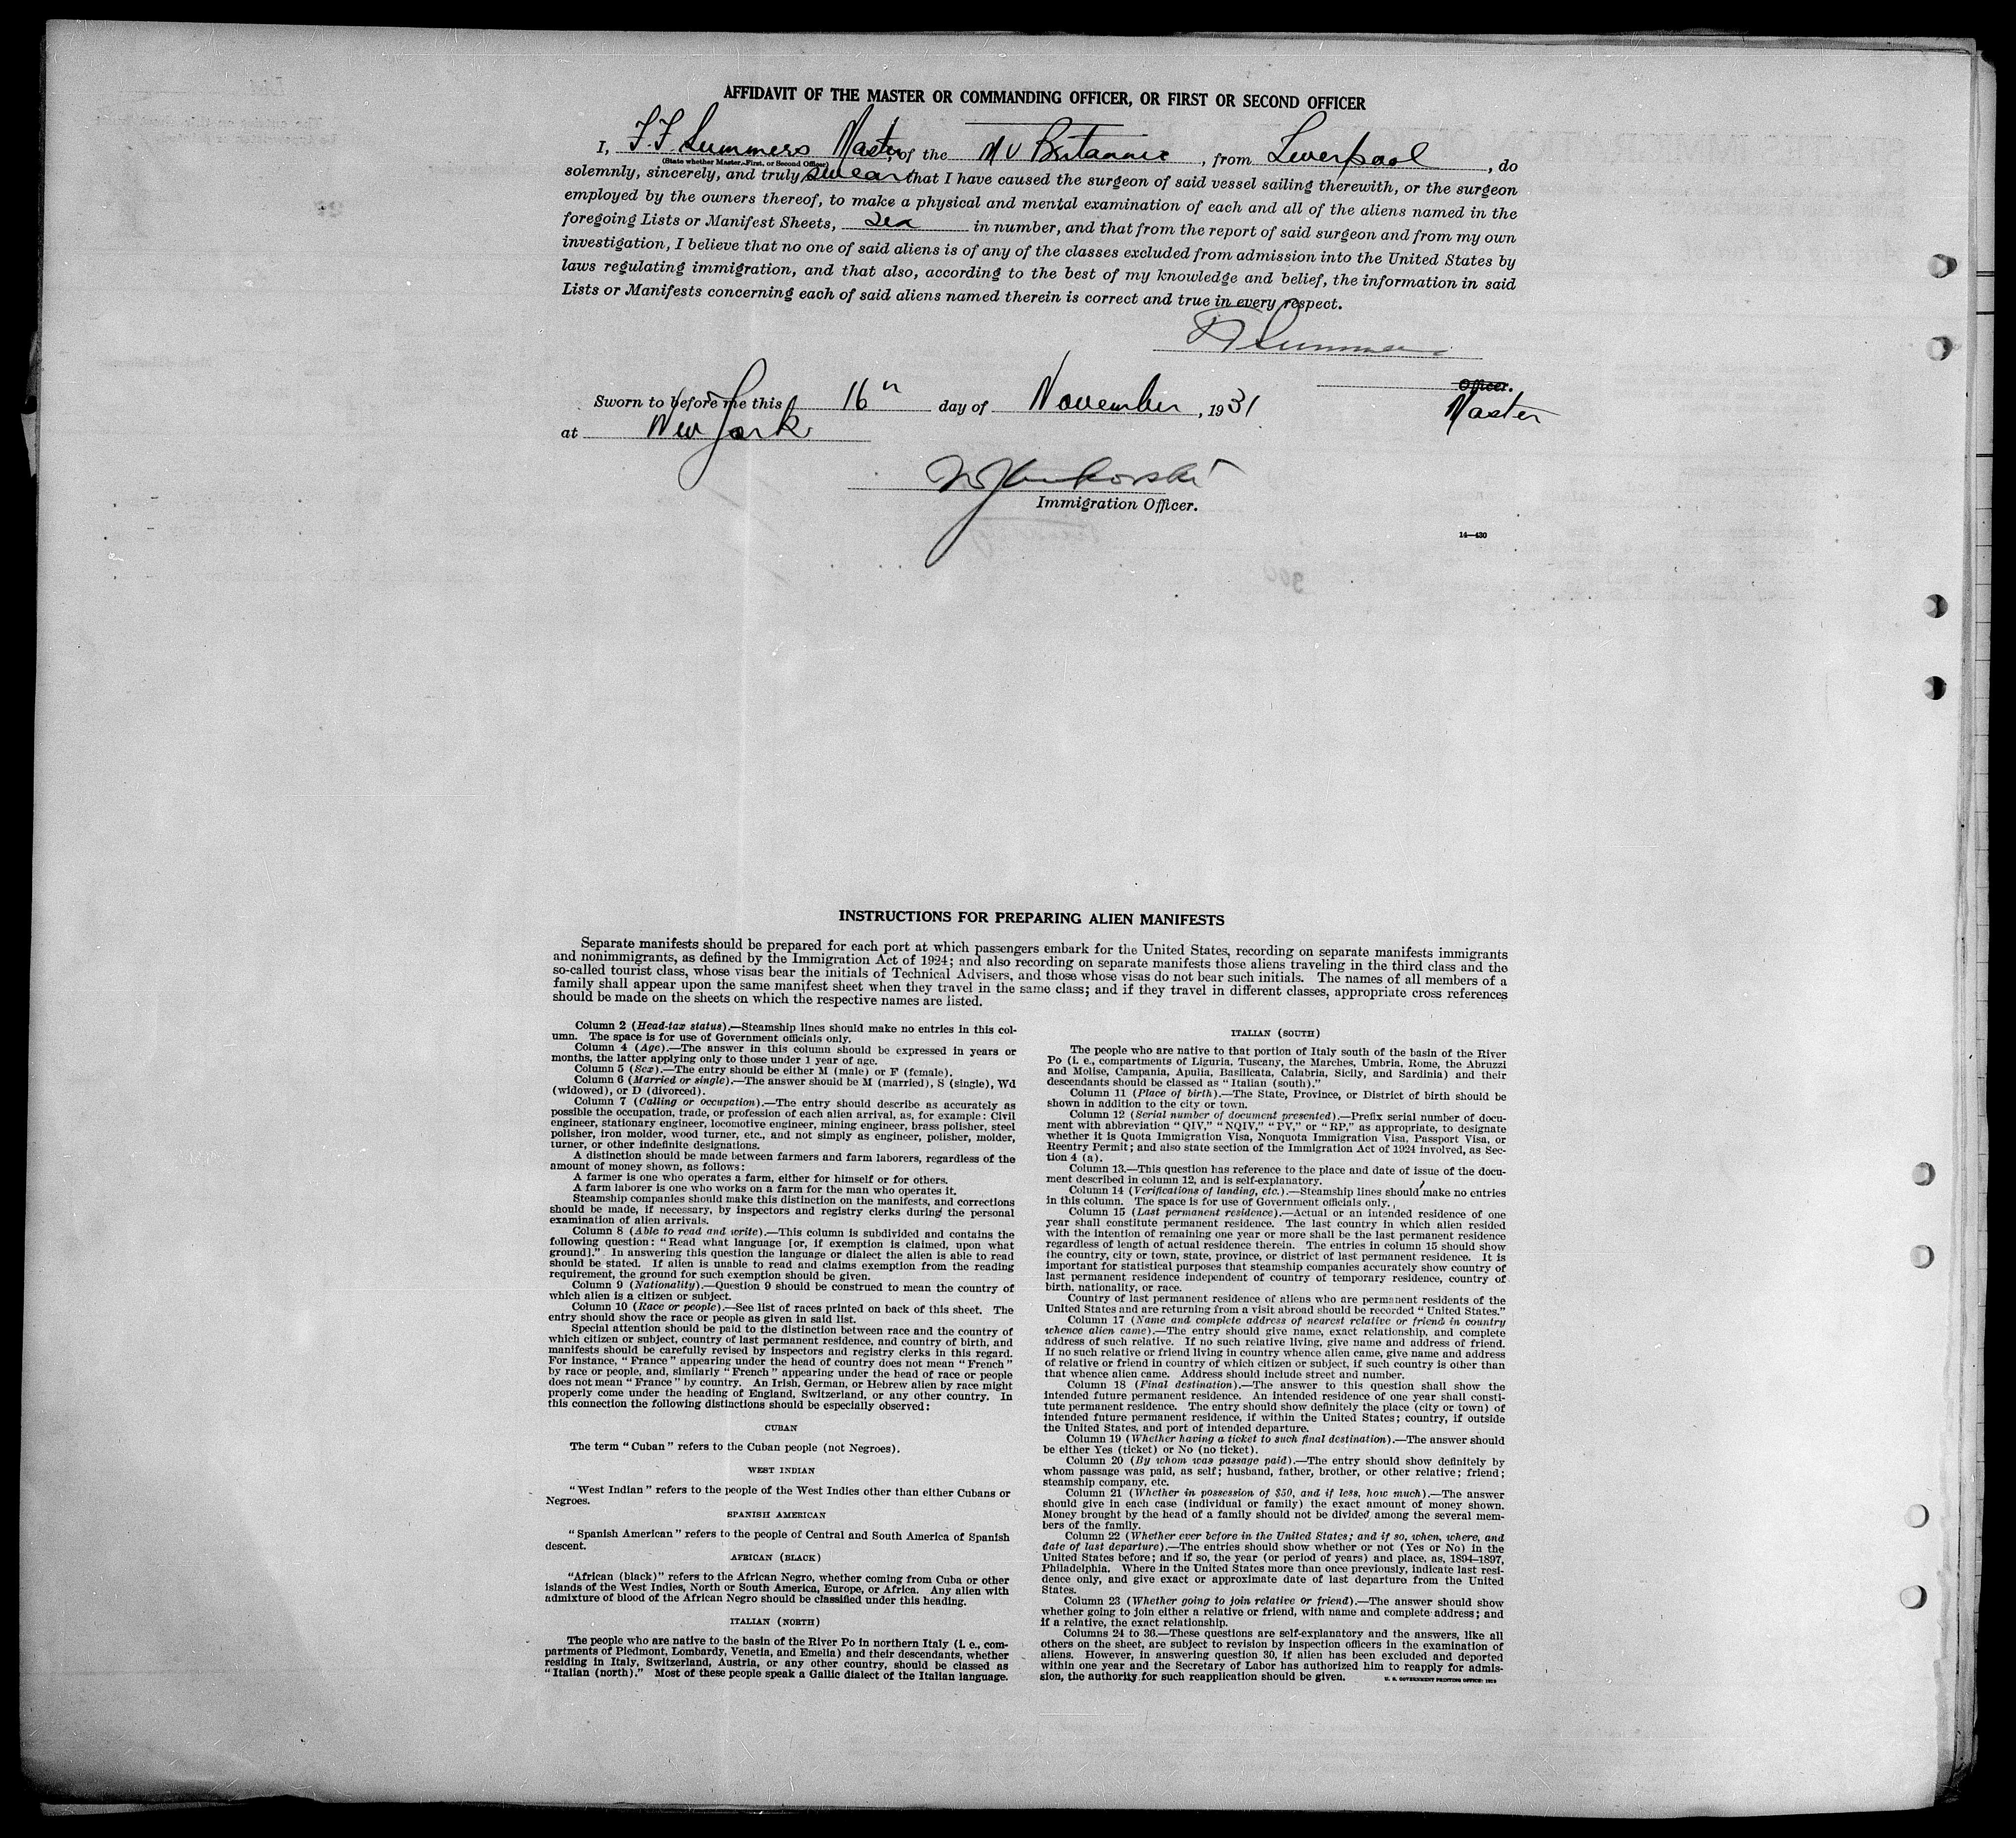 AFFIDAVIT OF THE MASTER OR COMMANDING OFFICER, OR FIRST OR SECOND OFFICER
I, F. F. Summers Master, of the MV Britannic, from Liverpool, do
(State whether Master, First, or Second Officer)
solemnly, sincerely, and truly swear that I have caused the surgeon of said vessel sailing therewith, or the surgeon
employed by the owners thereof, to make a physical and mental examination of each and all of the aliens named in the
foregoing Lists or Manifest Sheets, in number, and that from the report of said surgeon and from my own
investigation, I believe that no one of said aliens is of any of the classes excluded from admission into the United States by
laws regulating immigration, and that also, according to the best of my knowledge and belief, the information in said
Lists or Manifests concerning each of said aliens named therein is correct and true in every respect.
F F Summers
Officer.
Sworn to before me this 16th day of November, 1931
Master
at New York
Immigration Officer.
14—430
INSTRUCTIONS FOR PREPARING ALIEN MANIFESTS
Separate manifests should be prepared for each port at which passengers embark for the United States, recording on separate manifests immigrants
and nonimmigrants, as defined by the Immigration Act of 1924; and also recording on separate manifests those aliens traveling in the third class and the
so-called tourist class, whose visas bear the initials of Technical Advisers, and those whose visas do not bear such initials. The names of all members of a
family shall appear upon the same manifest sheet when they travel in the same class; and if they travel in different classes, appropriate cross references
should be made on the sheets on which the respective names are listed.
Column 2 (Head-tax status).—Steamship lines should make no entries in this col-
umn. The space is for use of Government officials only.
Column 4 (Age).—The answer in this column should be expressed in years or
months, the latter applying only to those under 1 year of age.
Column 5 (Sex).—The entry should be either M (male) or F (female).
Column 6 (Married or single).—The answer should be M (married), S (single), Wd
(widowed), or D (divorced).
Column 7 (Calling or occupation).—The entry should describe as accurately as
possible the occupation, trade, or profession of each alien arrival, as, for example: Civil
engineer, stationary engineer, locomotive engineer, mining engineer, brass polisher, steel
polisher, iron molder, wood turner, etc., and not simply as engineer, polisher, molder,
turner, or other indefinite designations.
A distinction should be made between farmers and farm laborers, regardless of the
amount of money shown, as follows:
A farmer is one who operates a farm, either for himself or for others.
A farm laborer is one who works on a farm for the man who operates it.
Steamship companies should make this distinction on the manifests, and corrections
should be made, if necessary, by inspectors and registry clerks during the personal
examination of alien arrivals.
Column 8 (Able to read and write).—This column is subdivided and contains the
following question: "Read what language [or, if exemption is claimed, upon what
ground]." In answering this question the language or dialect the alien is able to read
should be stated. If alien is unable to read and claims exemption from the reading
requirement, the ground for such exemption should be given.
Column 9 (Nationality).—Question 9 should be construed to mean the country of
which alien is a citizen or subject.
Column 10 (Race or people).—See list of races printed on back of this sheet. The
entry should show the race or people as given in said list.
Special attention should be paid to the distinction between race and the country of
which citizen or subject, country of last permanent residence, and country of birth, and
manifests should be carefully revised by inspectors and registry clerks in this regard.
For instance, "France" appearing under the head of country does not mean "French"
by race or people, and, similarly "French" appearing under the head of race or people
does not mean "France" by country. An Irish, German, or Hebrew alien by race might
properly come under the heading of England, Switzerland, or any other country. In
this connection the following distinctions should be especially observed:
CUBAN
The term "Cuban" refers to the Cuban people (not Negroes).
WEST INDIAN
"West Indian" refers to the people of the West Indies other than either Cubans or
Negroes.
SPANISH AMERICAN
"Spanish American" refers to the people of Central and South America of Spanish
descent.
AFRICAN (BLACK)
"African (black)" refers to the African Negro, whether coming from Cuba or other
islands of the West Indies, North or South America, Europe, or Africa. Any alien with
admixture of blood of the African Negro should be classified under this heading.
ITALIAN (NORTH)
The people who are native to the basin of the River Po in northern Italy (i. e., com-
partments of Piedmont, Lombardy, Venetia, and Emelia) and their descendants, whether
residing in Italy, Switzerland, Austria, or any other country, should be classed as
"Italian (north)." Most of these people speak a Gallic dialect of the Italian language.
ITALIAN (SOUTH)
The people who are native to that portion of Italy south of the basin of the River
Po (i. e., compartments of Liguria, Tuscany, the Marches, Umbria, Rome, the Abruzzi
and Molise, Campania, Apulia, Basilicata, Calabria, Sicily, and Sardinia) and their
descendants should be classed as "Italian (south)."
Column 11 (Place of birth).—The State, Province, or District of birth should be
shown in addition to the city or town.
Column 12 (Serial number of document presented).—Prefix serial number of docu-
ment with abbreviation "QIV," "NQIV," "PV," or "RP," as appropriate, to designate
whether it is Quota Immigration Visa, Nonquota Immigration Visa, Passport Visa, or
Reentry Permit; and also state section of the Immigration Act of 1924 involved, as Sec-
tion 4 (a).
Column 13.—This question has reference to the place and date of issue of the docu-
ment described in column 12, and is self-explanatory.
Column 14 (Verifications of landing, etc.).—Steamship lines should make no entries
in this column. The space is for use of Government officials only.
Column 15 (Last permanent residence).—Actual or an intended residence of one
year shall constitute permanent residence. The last country in which alien resided
with the intention of remaining one year or more shall be the last permanent residence
regardless of length of actual residence therein. The entries in column 15 should show
the country, city or town, state, province, or district of last permanent residence. It is
important for statistical purposes that steamship companies accurately show country of
last permanent residence independent of country of temporary residence, country of
birth, nationality, or race.
Country of last permanent residence of aliens who are permanent residents of the
United States and are returning from a visit abroad should be recorded "United States."
Column 17 (Name and complete address of nearest relative or friend in country
whence alien came).—The entry should give name, exact relationship, and complete
address of such relative. If no such relative living, give name and address of friend.
If no such relative or friend living in country whence alien came, give name and address
of relative or friend in country of which citizen or subject, if such country is other than
that whence alien came. Address should include street and number.
Column 18 (Final destination).—The answer to this question shall show the
intended future permanent residence. An intended residence of one year shall consti-
tute permanent residence. The entry should show definitely the place (city or town) of
intended future permanent residence, if within the United States; country, if outside
the United States, and port of intended departure.
Column 19 (Whether having a ticket to such final destination).—The answer should
be either Yes (ticket) or No (no ticket).
Column 20 (By whom was passage paid).—The entry should show definitely by
whom passage was paid, as self; husband, father, brother, or other relative; friend;
steamship company, etc.
Column 21 (Whether in possession of $50, and if less, how much).—The answer
should give in each case (individual or family) the exact amount of money shown.
Money brought by the head of a family should not be divided among the several mem-
bers of the family.
Column 22 (Whether ever before in the United States; and if so, when, where, and
date of last departure).—The entries should show whether or not (Yes or No) in the
United States before; and if so, the year (or period of years) and place, as, 1894–1897,
Philadelphia. Where in the United States more than once previously, indicate last resi-
dence only, and give exact or approximate date of last departure from the United
States.
Column 23 (Whether going to join relative or friend).—The answer should show
whether going to join either a relative or friend, with name and complete address; and
if a relative, the exact relationship.
Columns 24 to 36.—These questions are self-explanatory and the answers, like all
others on the sheet, are subject to revision by inspection officers in the examination of
aliens. However, in answering question 30, if alien has been excluded and deported
within one year and the Secretary of Labor has authorized him to reapply for admis-
sion, the authority for such reapplication should be given.
U. S. GOVERNMENT PRINTING OFFICE: 1929